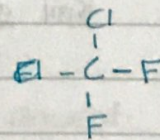 Cl
Cl - C - F
F